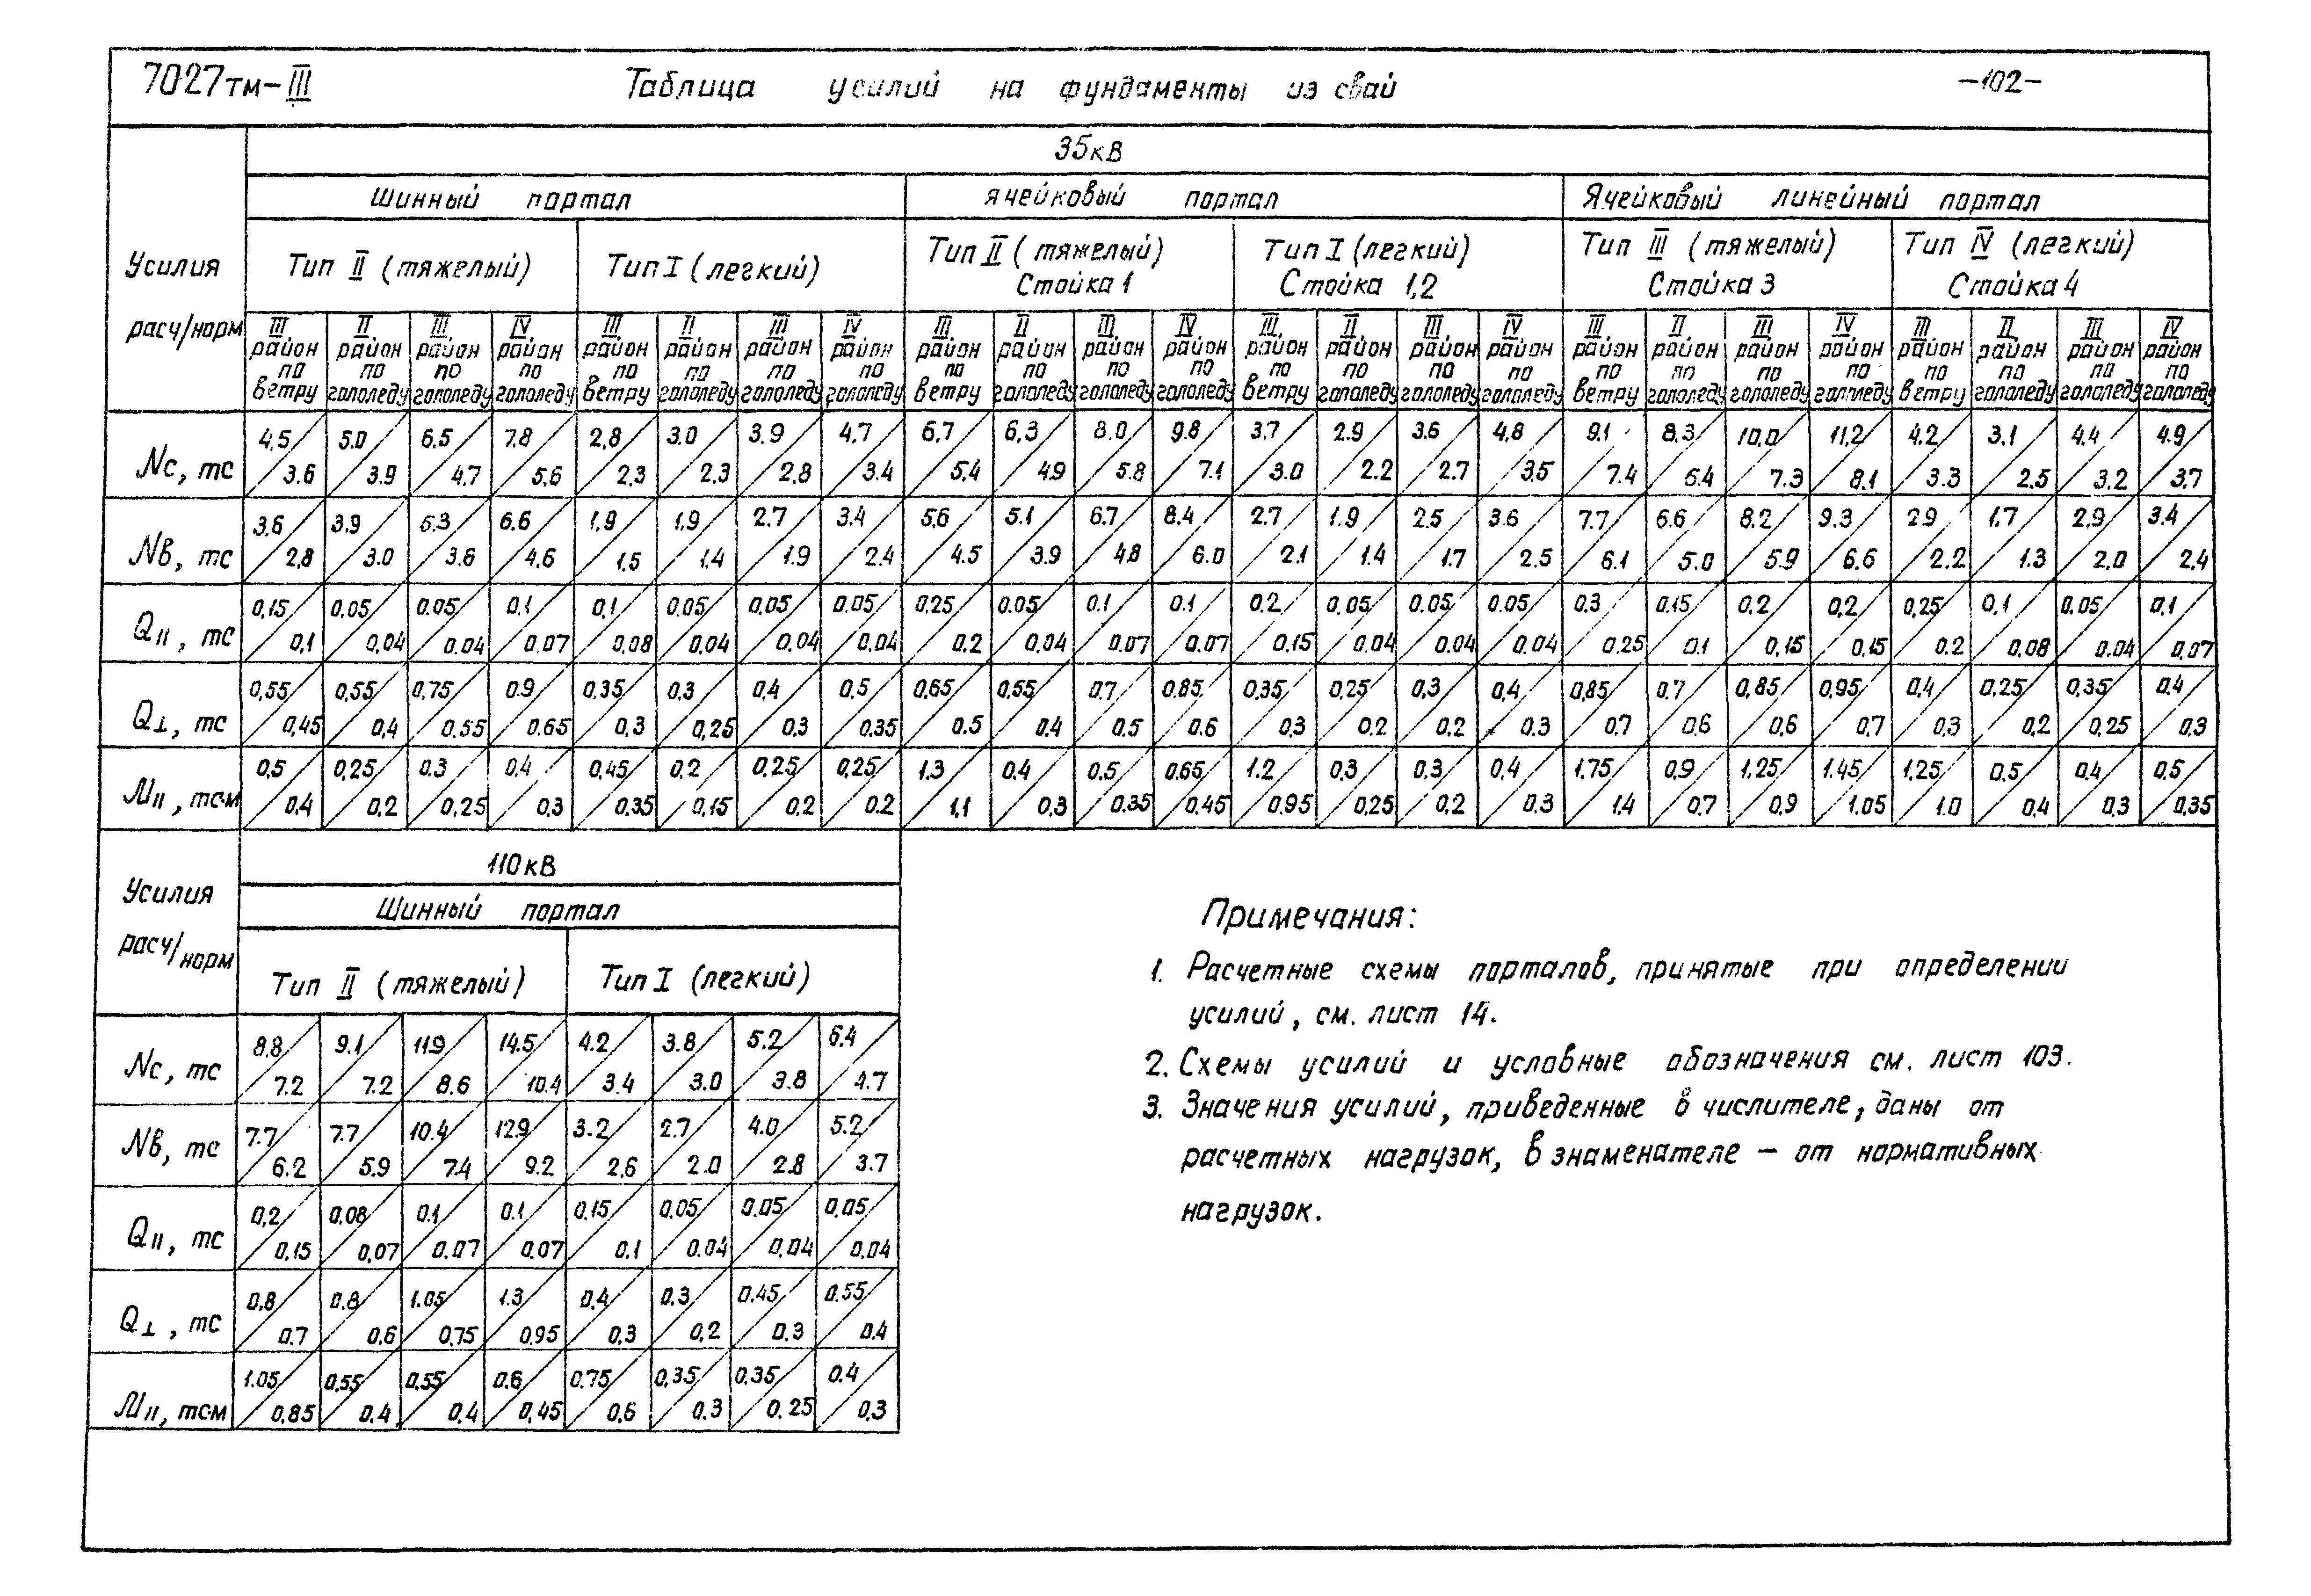 7027тм-III Таблица усилий на фундаменты из свай -102-
35кВ
Шинный портал ячейковый портал Ячейковый линейный портал
Усилия расч/норм
Тип II (тяжелый) Тип I (легкий) Тип II (тяжелый) Стойка 1 Тип I (легкий) Стойка 1,2 Тип III (тяжелый) Стойка 3 Тип IV (легкий) Стойка 4
III район по ветру II район по гололеду III район по гололеду IV район по гололеду III район по ветру II район по гололеду III район по гололеду IV район по гололеду III район по ветру II район по гололеду III район по гололеду IV район по гололеду III район по ветру II район по гололеду III район по гололеду IV район по гололеду III район по ветру II район по гололеду III район по гололеду IV район по гололеду III район по ветру II район по гололеду III район по гололеду IV район по гололеду
Nс, тс 4,5/3.6 5.0/3.9 6,5/4,7 7.8/5,6 2,8/2,3 3.0/2,3 3.9/2,8 4.7/3.4 6,7/5,4 6,3/4,9 8.0/5.8 9.8/7.1 3.7/3.0 2.9/2.2 3.6/2.7 4,8/3.5 9.1/7.4 8,3/6.4 10,0/7.3 11,2/8,1 4,2/3.3 3.1/2,5 4,4/3.2 4.9/3,7
Nв, тс 3,6/2,8 3.9/3.0 5.3/3.6 6.6/4,6 1,9/1,5 1,9/1,4 2.7/1.9 3.4/2.4 5,6/4.5 5.1/3.9 6.7/4.8 8.4/6.0 2.7/2.1 1.9/1.4 2.5/1.7 3.6/2.5 7.7/6.1 6.6/5.0 8.2/5.9 9.3/6.6 2.9/2.2 1.7/1.3 2,9/2,0 3.4/2,4
QII, тс 0,15/0,1 0,05/0,04 0.05/0.04 0,1/0.07 0,1/0,08 0.05/0.04 0,05/0.04 0.05/0.04 0.25/0.2 0.05/0.04 0.1/0.07 0.1/0.07 0.2/0.15 0.05/0.04 0.05/0.04 0.05/0.04 0.3/0.25 0.15/0.1 0,2/0,15 0,2/0,15 0,25/0.2 0,1/0,08 0.05/0.04 0,1/0,07
Q⊥, тс 0,55/0,45 0,55/0,4 0,75/0.55 0.9/0.65 0,35/0,3 0.3/0,25 0,4/0.3 0,5/0.35 0,65/0.5 0.55/0.4 0.7/0.5 0.85/0.6 0,35/0,3 0,25/0.2 0,3/0.2 0,4/0.3 0,85/0.7 0.7/0,6 0,85/0,6 0,95/0,7 0,4/0,3 0,25/0,2 0,35/0,25 0.4/0.3
МII, тсм 0,5/0,4 0,25/0.2 0.3/0,25 0.4/0.3 0,45/0.35 0.2/0,15 0,25/0,2 0,25/0.2 1.3/1,1 0.4/0.3 0.5/0.35 0,65/0.45 1.2/0.95 0.3/0.25 0.3/0,2 0,4/0.3 1.75/1,4 0.9/0.7 1.25/0.9 1.45/1.05 1,25/1.0 0,5/0,4 0,4/0,3 0.5/0,35
110кВ
Усилия расч/норм
Шинный портал
Тип II (тяжелый) Тип I (легкий)
Nс, тс 8,8/7.2 9.1/7.2 11.9/8.6 14.5/10.4 4.2/3.4 3.8/3.0 5.2/3.8 6.4/4.7
Nв, тс 7.7/6.2 7.7/5.9 10.4/7.4 12.9/9.2 3.2/2,6 2.7/2.0 4.0/2.8 5.2/3.7
QII, тс 0,2/0.15 0,08/0,07 0.1/0.07 0.1/0.07 0.15/0.1 0,05/0.04 0.05/0,04 0,05/0.04
Q⊥, тс 0,8/0.7 0.8/0.6 1.05/0,75 1.3/0.95 0,4/0,3 0.3/0,2 0,45/0.3 0.55/0.4
МII, тсм 1.05/0,85 0,55/0.4 0.55/0,4 0.6/0,45 0.75/0,6 0,35/0.3 0,35/0.25 0.4/0,3
Примечания:
1. Расчетные схемы порталов, принятые при определении
усилий, см. лист 14.
2. Схемы усилий и условные обозначения см. лист 103.
3. Значения усилий, приведенные в числителе, даны от
расчетных нагрузок, в знаменателе - от нормативных
нагрузок.